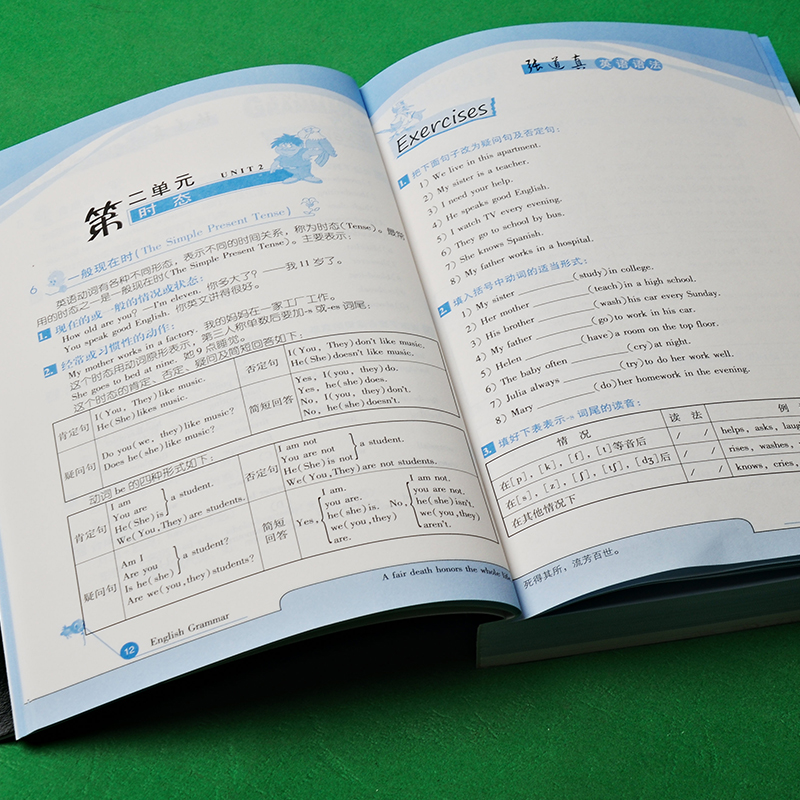 第二单元 UNIT 2
时态
6 一般现在时(The Simple Present Tense)
英语动词有各种不同形态，表示不同的时间关系，称为时态(Tense)。最常
用的时态之一是一般现在时(The Simple Present Tense)。主要表示：
1. 现在的或一般的情况或状态：
How old are you? —I'm eleven. 你多大了？ —我11岁了。
You speak good English. 你英文讲得很好。
2. 经常或习惯性的动作：
My mother works in a factory. 我的妈妈在一家工厂工作。
She goes to bed at nine. 她9点睡觉。
这个时态用动词原形表示，第三人称单数后要加-s或-es词尾：
这个时态的肯定、否定、疑问及简短回答如下：
肯定句 I(You, They)like music. 否定句 I(You, They)don't like music.
He(She)likes music. He(She)doesn't like music.
疑问句 Do you(we, they)like music? 简短回答 Yes, I(you, they)do.
Does he(she)like music? Yes, he(she)does.
No, I(you, they)don't.
No, he(she)doesn't.
动词be的四种形式如下：
肯定句 I am 否定句 I am not
You are a student. You are not a student.
He(She)is He(She)is not
We(You, They)are students. We(You, They)are not students.
疑问句 Am I 简短回答 Yes, I am. No, I am not.
Are you a student? you are. you are not.
Is he(she) he(she)is. he(she)isn't.
Are we(you, they)students? we(you, they) we(you, they)
are. aren't.
A fair death honors the whole
12 English Grammar
张道真 英语语法
Exercises
1. 把下面句子改为疑问句及否定句：
1) We live in this apartment.
2) My sister is a teacher.
3) I need your help.
4) He speaks good English.
5) I watch TV every evening.
6) They go to school by bus.
7) She knows Spanish.
8) My father works in a hospital.
2. 填入括号中动词的适当形式：
1) My sister ________(study)in college.
2) Her mother ________(teach)in a high school.
3) His brother ________(wash)his car every Sunday.
4) My father ________(go)to work in his car.
5) Helen ________(have)a room on the top floor.
6) The baby often ________(cry)at night.
7) Julia always ________(try)to do her work well.
8) Mary ________(do)her homework in the evening.
3. 填好下表表示-s词尾的读音：
情 况 读 法 例
在[p], [k], [f], [t]等音后 / / helps, asks,
在[s], [z], [ʃ], [tʃ], [dʒ]后 / / rises, washes,
在其他情况下 / / knows, cries,
死得其所，流芳百世。